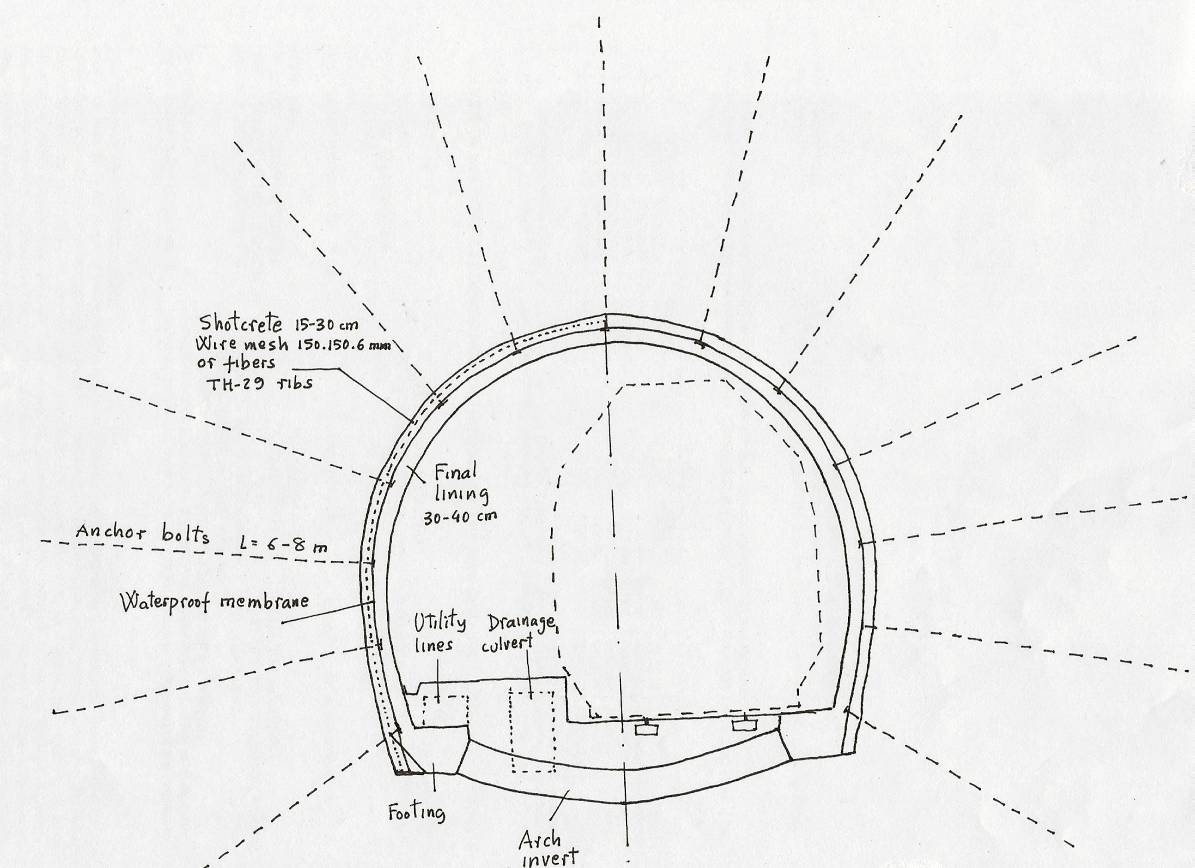 Shotcrete 15-30 cm
Wire mesh 150.150.6 mm
or fibers
TH-29 ribs
Final
lining
30-40 cm
Anchor bolts L= 6-8 m
Waterproof membrane
Utility
lines
Drainage
culvert
Footing
Arch
invert